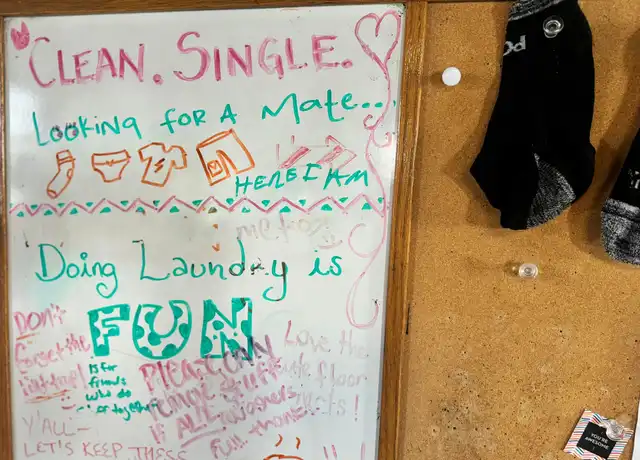 CLEAN. SINGLE.
Looking for a Mate...
HERE I AM
me too
Doing Laundry is
FUN
is for
friends
who do
together
DON'T
Forget the
lint trap!
PLEASE
if ALL washers
full. thanks!
Love the
floor
Y'ALL-
LET'S KEEP THESE
YOU'RE
AWESOME